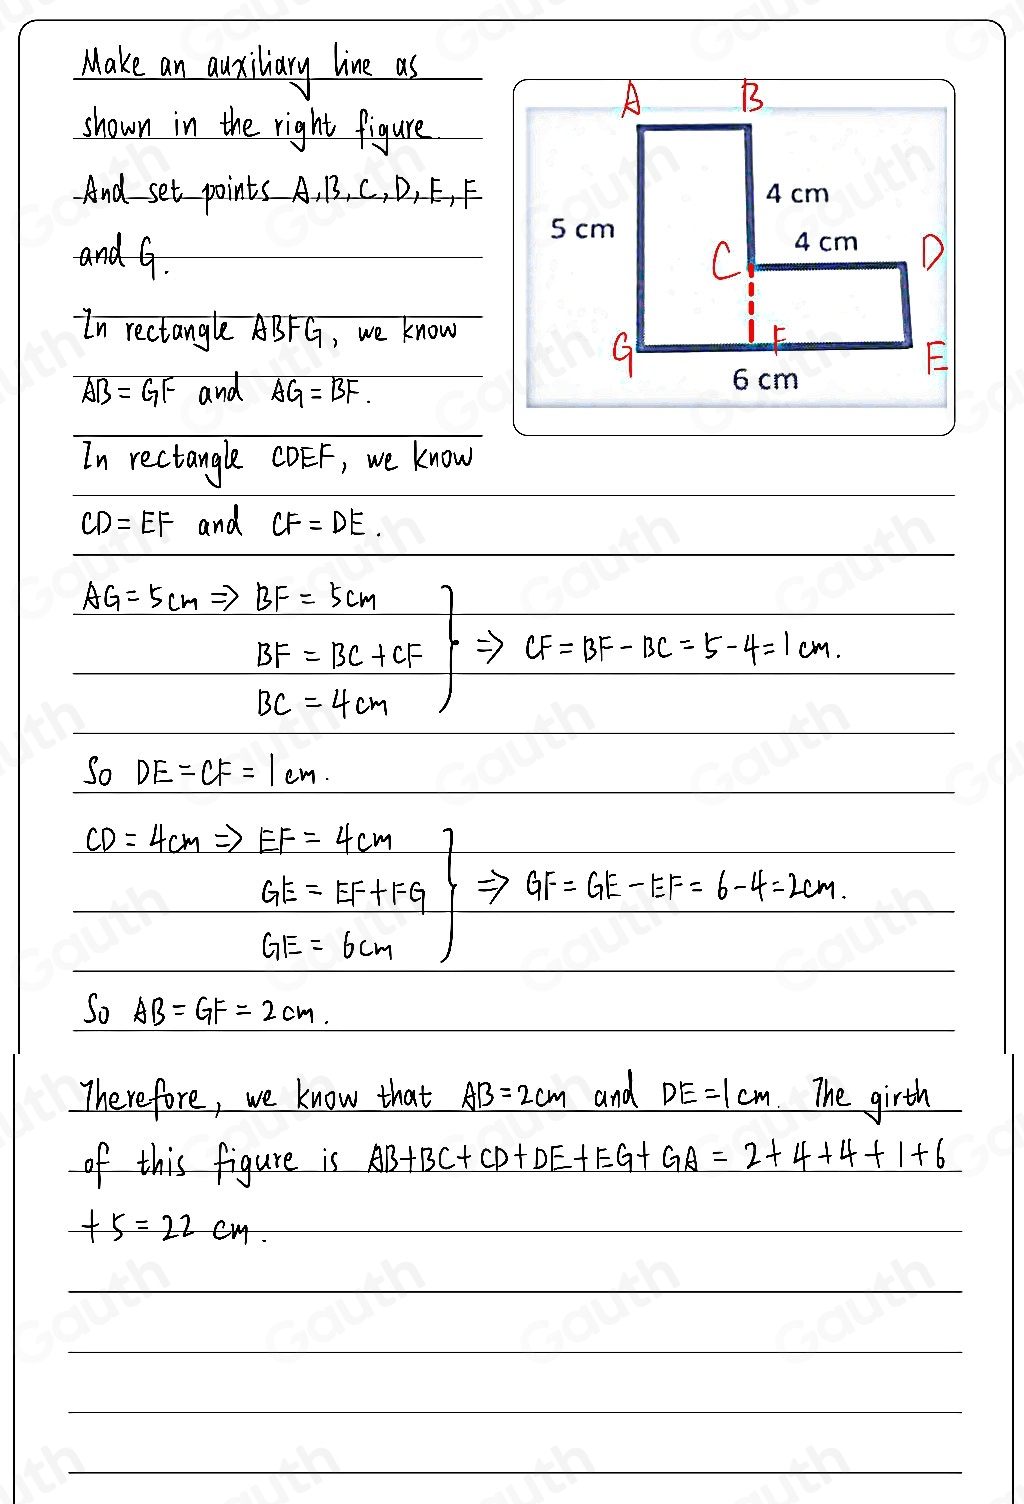 Make an auxiliary line as
shown in the right figure.
And set points A, B, C, D, E, F
and G.
In rectangle ABFG, we know
AB = GF and AG = BF.
In rectangle CDEF, we know
CD = EF and CF = DE.
A B
4 cm
5 cm
4 cm
C D
G F E
6 cm
AG = 5cm ⇒ BF = 5cm
BF = BC + CF ⇒ CF = BF - BC = 5 - 4 = 1 cm.
BC = 4cm
So DE = CF = 1 cm.
CD = 4cm ⇒ EF = 4cm
GE = EF + FG ⇒ GF = GE - EF = 6 - 4 = 2cm.
GE = 6cm
So AB = GF = 2cm.
Therefore, we know that AB = 2cm and DE = 1cm. The girth
of this figure is AB + BC + CD + DE + EG + GA = 2 + 4 + 4 + 1 + 6
+ 5 = 22 cm.
Gauth